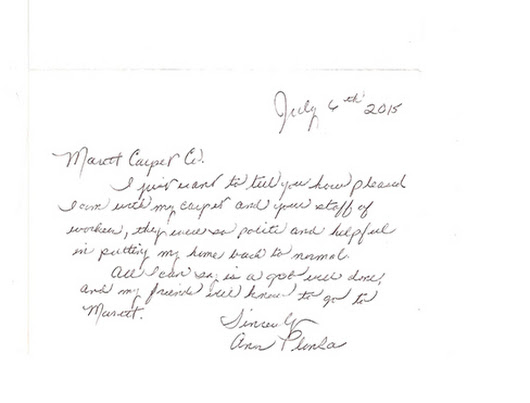 July 6th 2015
Marott Carpet Co.
I just want to tell you how pleased
I am with my carpet and your staff of
worker, they were so polite and helpful
in putting my home back to normal.
All I can say is a job well done,
and my friends will know to go to
Marott.
Sincerely
Ann